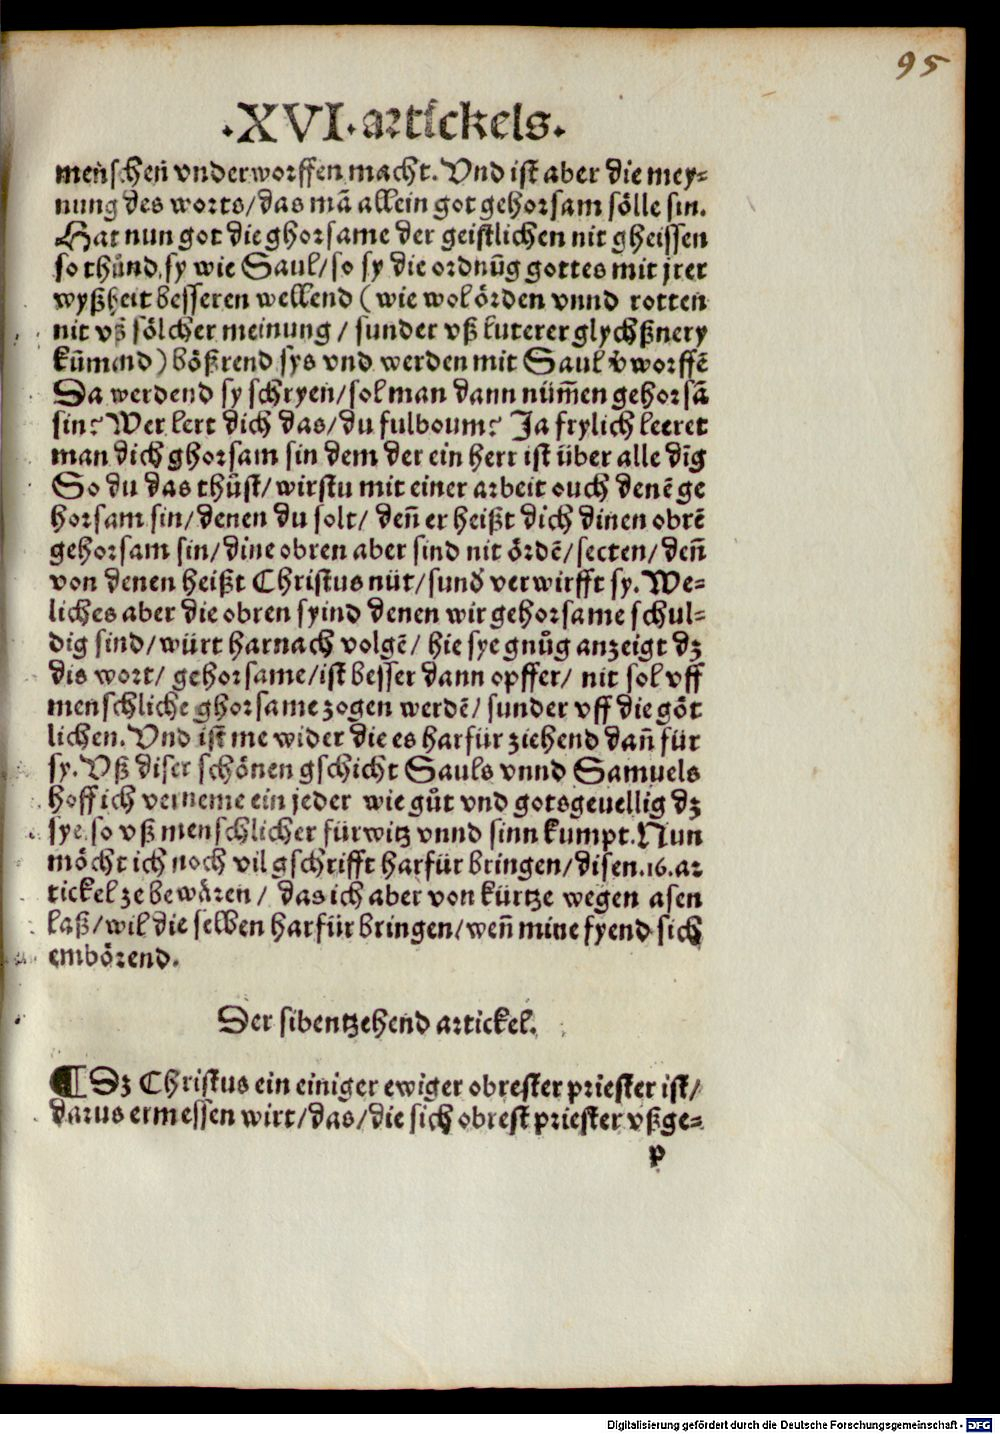 95
·XVI·artickels.
menschen vnderworffen macht. Vnd ist aber die mey⸗
nung des worts/das mā allein got gehorsam sölle sin.
Hat nun got die ghorsame der geistlichen nit gheissen
so thůnd sy wie Saul/so sy die ordnūg gottes mit jrer
wyßheit besseren wellend (wie wol örden vnnd rotten
nit vß sölcher meinung / sunder vß luterer glychßnery
kūmend) bößrend sys vnd werden mit Saul v̄worffē
Da werdend sy schryen/sol man dann nūmen gehorsā
sin? Wer lert dich das/du fulboum? Ja frylich leeret
man dich ghorsam sin dem der ein herr ist über alle dīg
So du das thůst/wirstu mit einer arbeit ouch denē ge
horsam sin/denen du solt/ deñ er heißt dich dinen obrē
gehorsam sin/dine obren aber sind nit ördē/secten/deñ
von denen heißt Christus nüt/sund̄ verwirfft sy. We⸗
liches aber die obren syind denen wir gehorsame schul⸗
dig sind/würt harnach volgē/ hie sye gnůg anzeigt dz
dis wort/ gehorsame/ist besser dann opffer/ nit sol vff
menschliche ghorsame zogen werdē/ sunder vff die göt
lichen. Vnd ist me wider die es harfür ziehend dañ für
sy. Vß diser schönen gschicht Sauls vnnd Samuels
hoff ich verneme ein jeder wie gůt vnd gotsgeuellig dz
sye so vß menschlicher fürwitz vnnd sinn kumpt. Nun
möcht ich noch vil gschrifft harfür bringen/disen.16.ar
tickel ze bewären / das ich aber von kürtze wegen asen
laß/wil die selben harfür bringen/weñ mine fyend sich
embörend.
Der sibentzehend artickel.
¶ Dz Christus ein einiger ewiger obrester priester ist/
darus ermessen wirt/das/die sich obrest priester vßge⸗
p
Digitalisierung gefördert durch die Deutsche Forschungsgemeinschaft - DFG